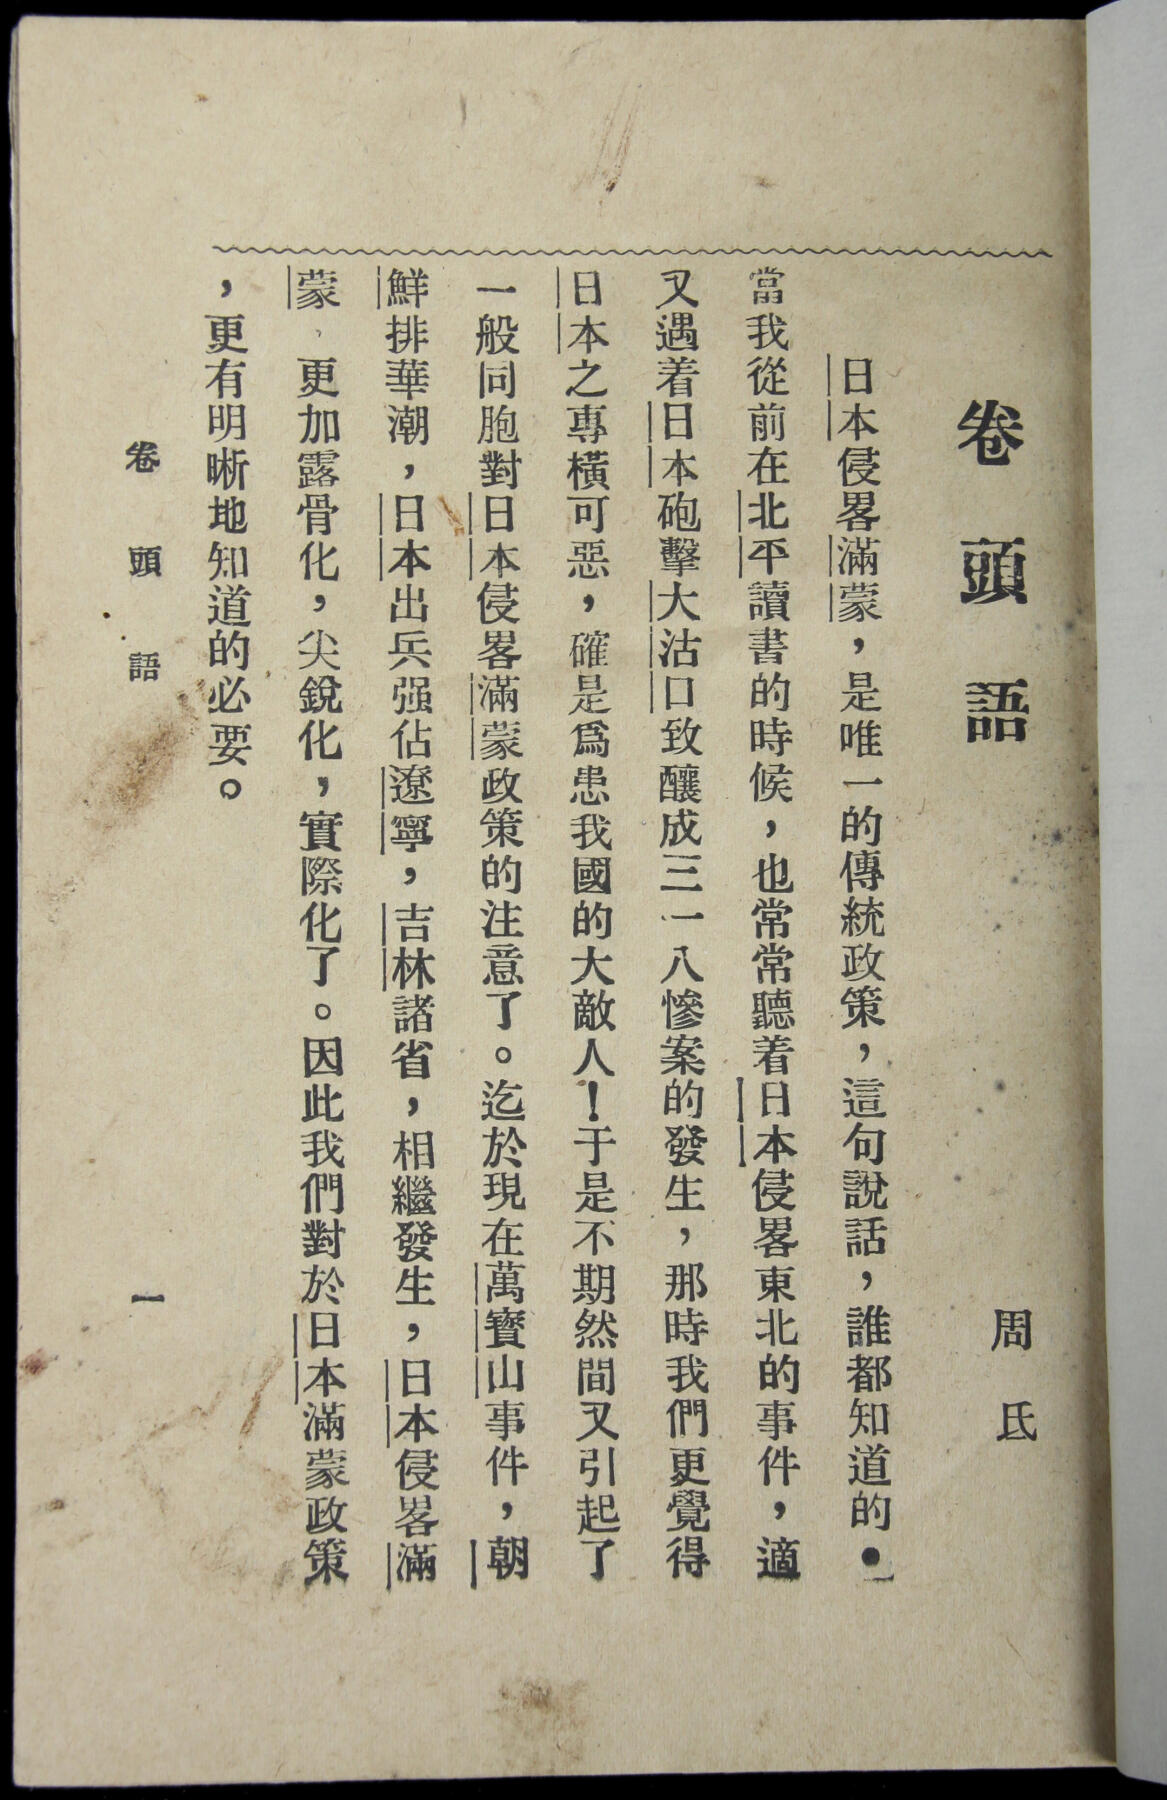 卷頭語
周氏
日本侵畧滿蒙，是唯一的傳統政策，這句說話，誰都知道的●
當我從前在北平讀書的時候，也常常聽着日本侵畧東北的事件，適
又遇着日本砲擊大沽口致釀成三一八慘案的發生，那時我們更覺得
日本之專橫可惡，確是爲患我國的大敵人！于是不期然間又引起了
一般同胞對日本侵畧滿蒙政策的注意了。迄於現在萬寳山事件，朝
鮮排華潮，日本出兵强佔遼寧，吉林諸省，相繼發生，日本侵畧滿
蒙，更加露骨化，尖銳化，實際化了。因此我們對於日本滿蒙政策
，更有明晰地知道的必要。
卷頭語
一